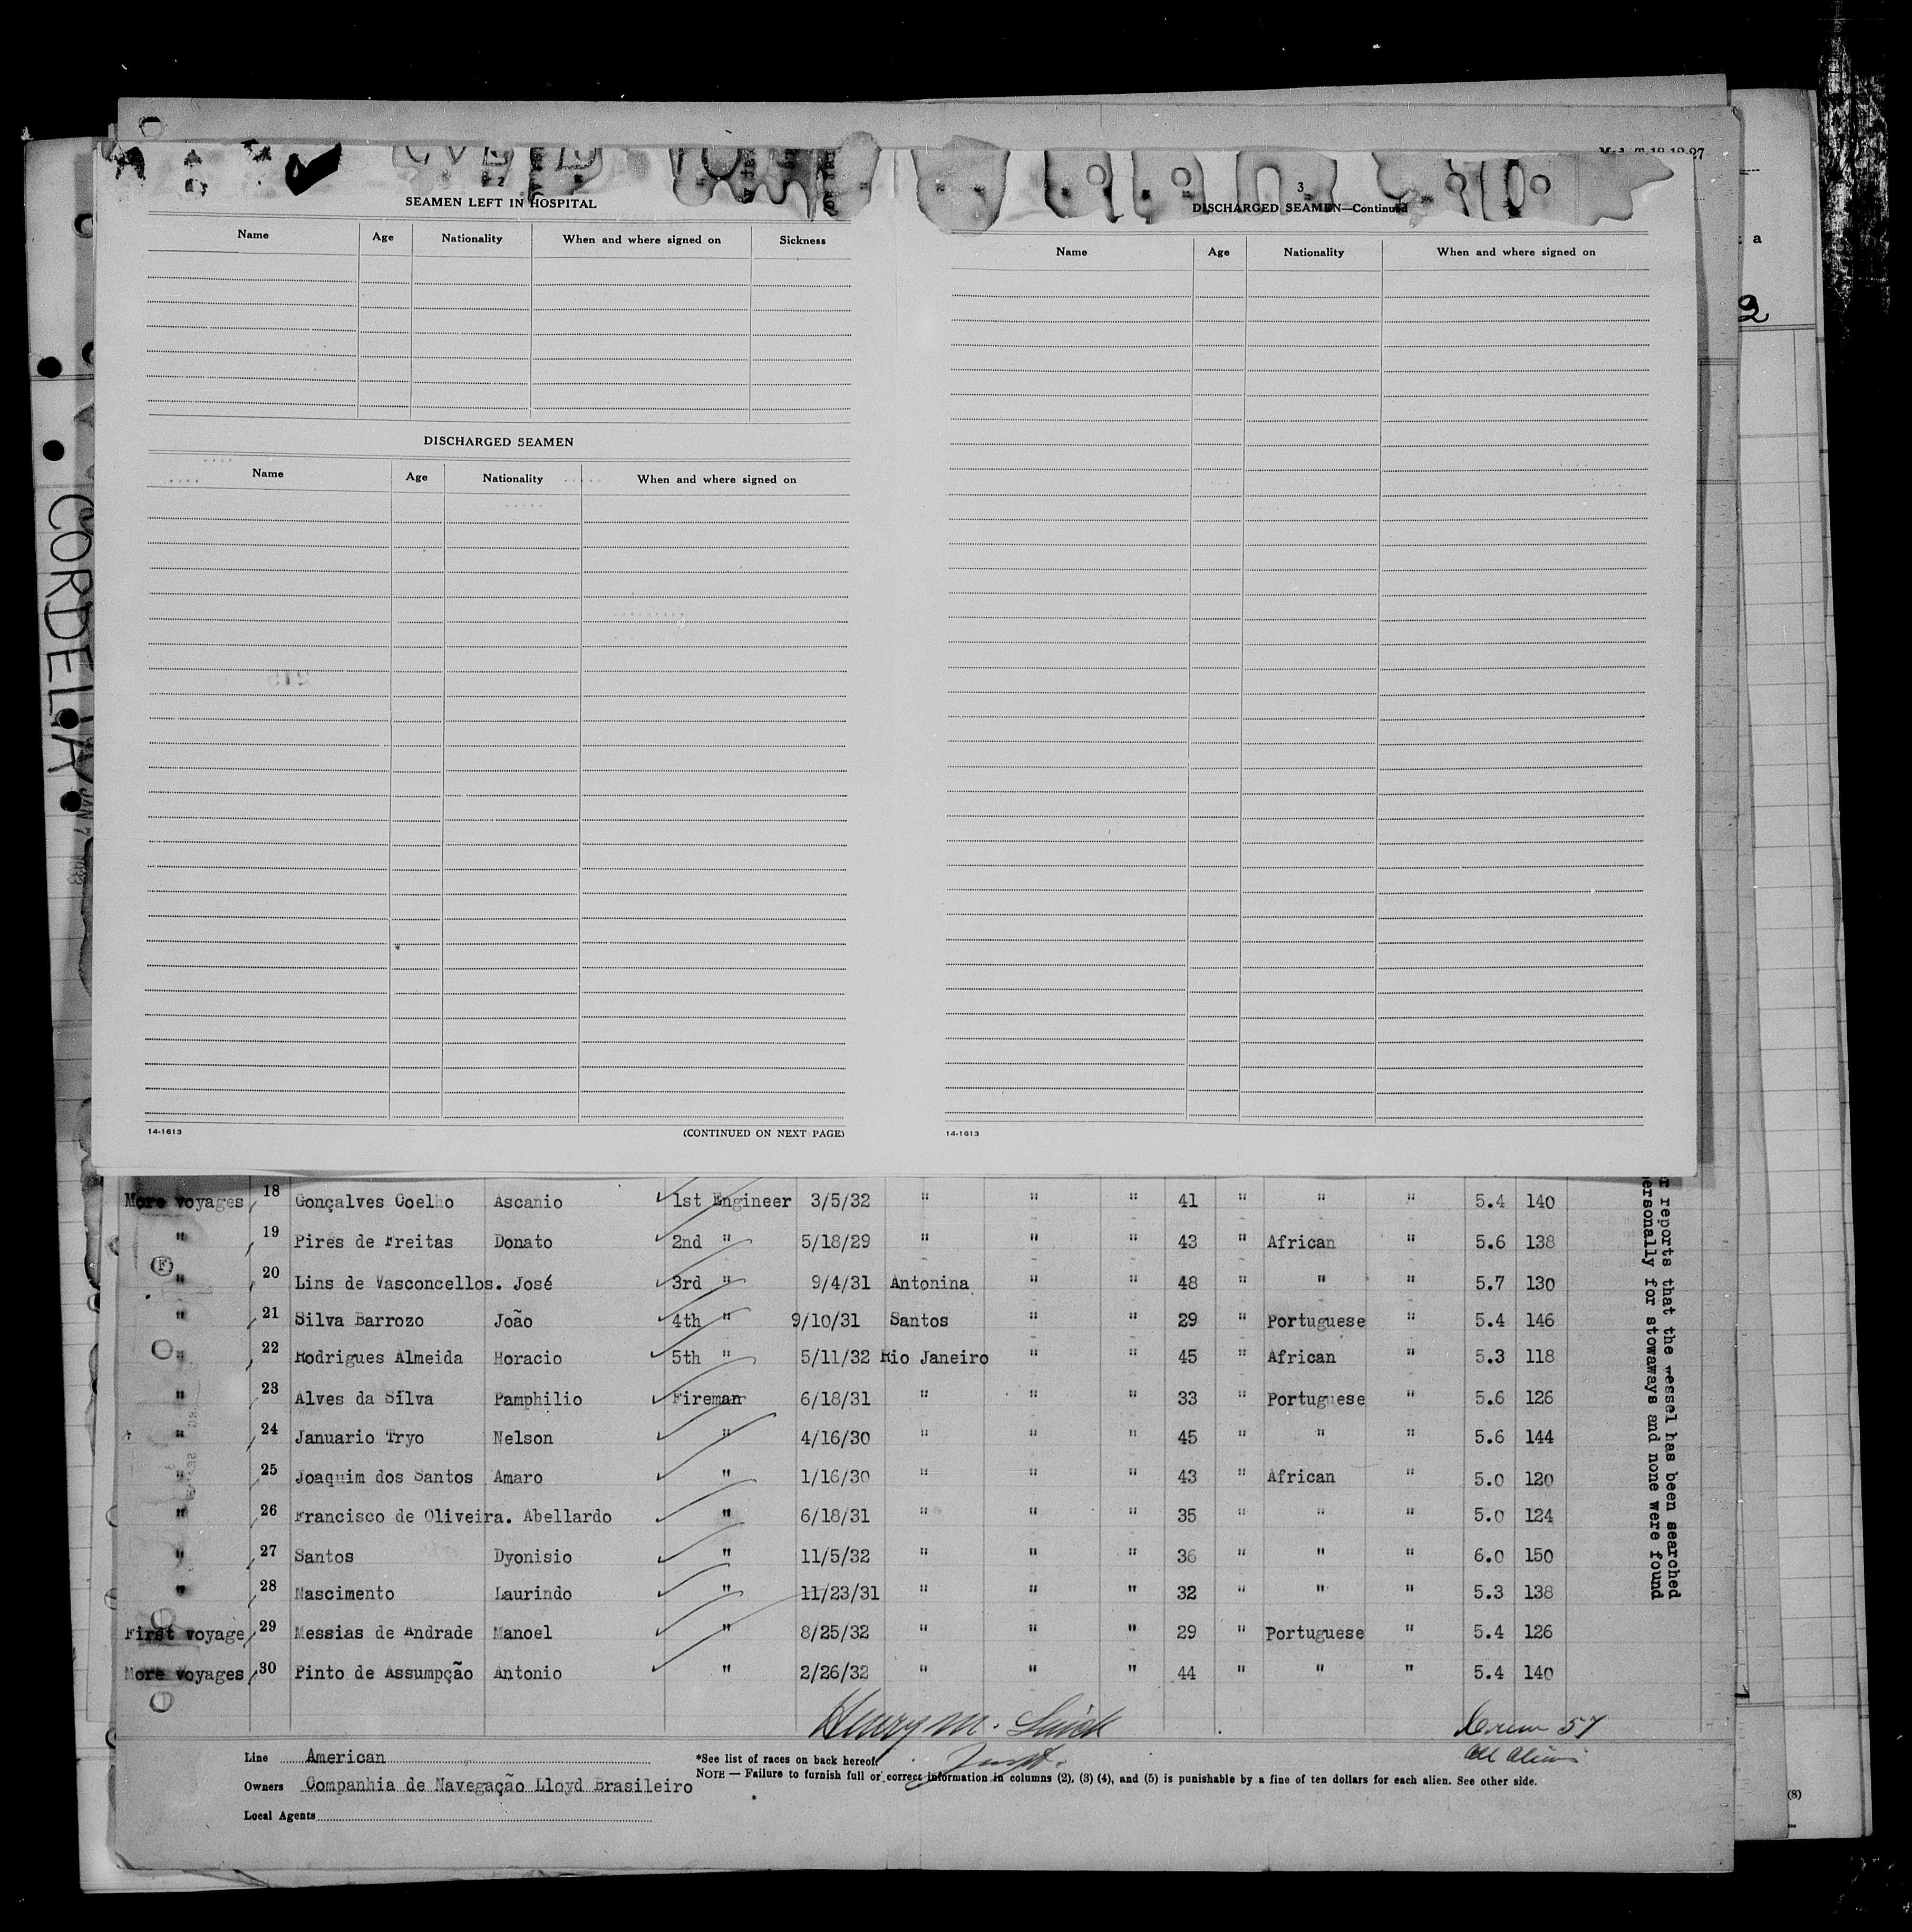 2
SEAMEN LEFT IN HOSPITAL
Name Age Nationality When and where signed on Sickness
DISCHARGED SEAMEN
Name Age Nationality When and where signed on
14-1613 (CONTINUED ON NEXT PAGE)
3
DISCHARGED SEAMEN—Continued
Name Age Nationality When and where signed on
14-1613
CORDELIA
JAN 7
a
2
More voyages 18 Gonçalves Coelho Ascanio 1st Engineer 3/5/32 " " " 41 " " " 5.4 140
" 19 Pires de Freitas Donato 2nd " 5/18/29 " " " 43 " African " 5.6 138
F " 20 Lins de Vasconcellos. José 3rd " 9/4/31 Antonina " " 48 " " " 5.7 130
" 21 Silva Barrozo João 4th " 9/10/31 Santos " " 29 " Portuguese " 5.4 146
" 22 Rodrigues Almeida Horacio 5th " 5/11/32 Rio Janeiro " " 45 " African " 5.3 118
" 23 Alves da Silva Pamphilio Fireman 6/18/31 " " " 33 " Portuguese " 5.6 126
" 24 Januario Tryo Nelson " 4/16/30 " " " 45 " " " 5.6 144
" 25 Joaquim dos Santos Amaro " 1/16/30 " " " 43 " African " 5.0 120
" 26 Francisco de Oliveira. Abellardo " 6/18/31 " " " 35 " " " 5.0 124
" 27 Santos Dyonisio " 11/5/32 " " " 36 " " " 6.0 150
" 28 Nascimento Laurindo " 11/23/31 " " " 32 " " " 5.3 138
First voyage 29 Messias de Andrade Manoel " 8/25/32 " " " 29 " Portuguese " 5.4 126
More voyages 30 Pinto de Assumpção Antonio " 2/26/32 " " " 44 " " " 5.4 140
reports that the vessel has been searched
personally for stowaways and none were found
Henry M.
57
All Aliens
Line American
Owners Companhia de Navegação Lloyd Brasileiro
Local Agents
*See list of races on back hereof.
NOTE — Failure to furnish full or correct information in columns (2), (3) (4), and (5) is punishable by a fine of ten dollars for each alien. See other side.
(8)